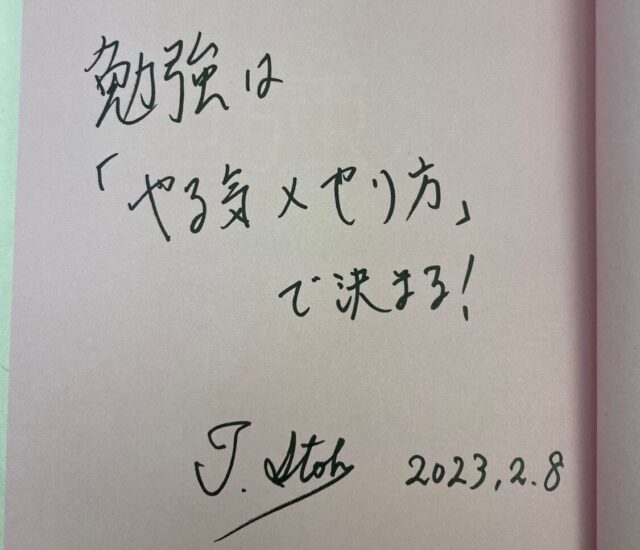 勉強は
「やる気×やり方」
で決まる!
T. Itoh 2023.2.8